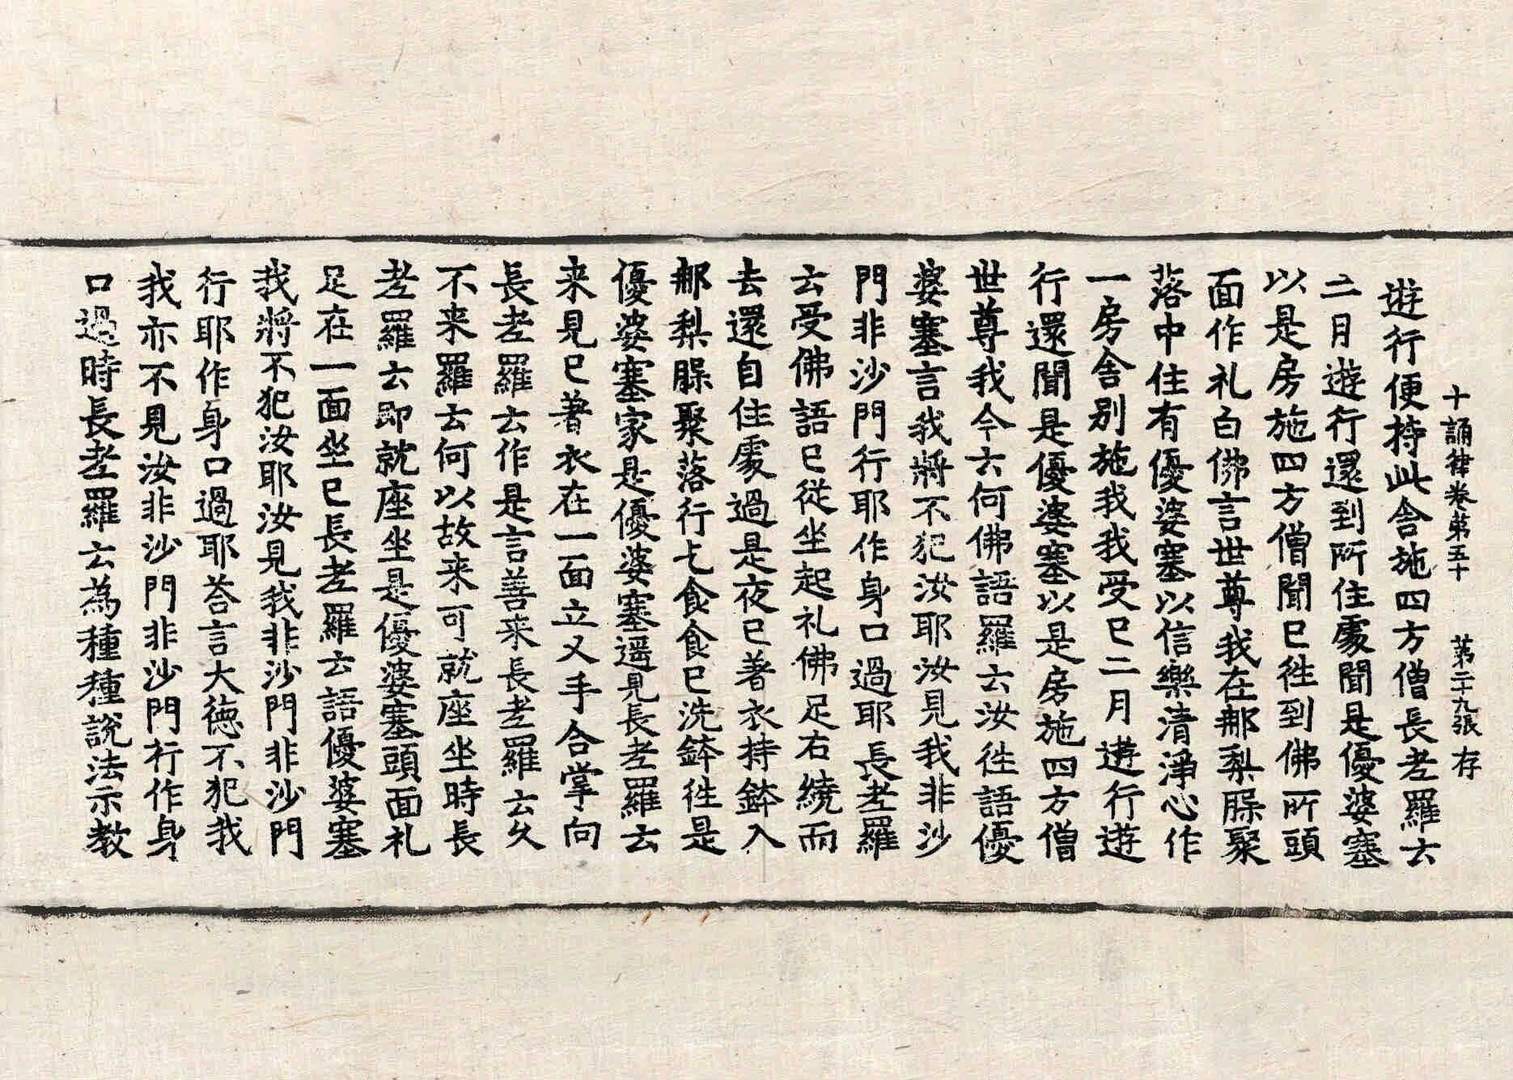 十誦律卷第五十　第二十九張　存
遊行便持此舍施四方僧長老羅云
二月遊行還到所住處聞是優婆塞
以是房施四方僧聞已往到佛所頭
面作礼白佛言世尊我在那梨䐑聚
落中住有優婆塞以信樂清淨心作
一房舍別施我我受已二月遊行遊
行還聞是優婆塞以是房施四方僧
世尊我今云何佛語羅云汝往語優
婆塞言我將不犯汝耶汝見我非沙
門非沙門行耶作身口過耶長老羅
云受佛語已從坐起礼佛足右繞而
去還自住處過是夜已著衣持鉢入
那梨䐑聚落行乞食食已洗鉢往是
優婆塞家是優婆塞遥見長老羅云
来見已著衣在一面立叉手合掌向
長老羅云作是言善来長老羅云久
不来羅云何以故来可就座坐時長
老羅云即就座坐是優婆塞頭面礼
足在一面坐已長老羅云語優婆塞
我將不犯汝耶汝見我非沙門非沙門
行耶作身口過耶荅言大德不犯我
我亦不見汝非沙門非沙門行作身
口過時長老羅云為種種說法示教